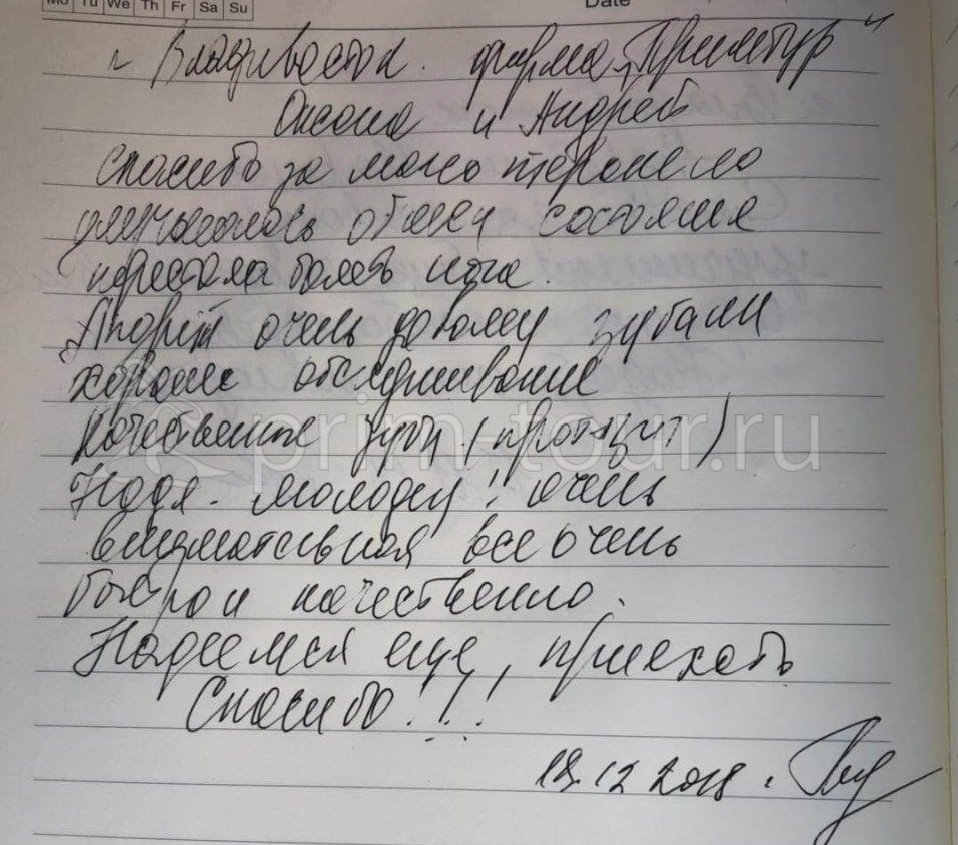 Mo Tu We Th Fr Sa Su
Date
г Владивосток. фирма „Примтур"
Оксана и Андрей
Спасибо за мою
улучшилось общее состояние
перестала болеть нога.
Андрей очень доволен зубами
хорошее обслуживание
Качественные зубы (протезит)
prim-tour.ru
Надя - молодец!! очень
внимательная все очень
быстро и качественно.
Надеемся еще, приехать
Спасибо!!!
18.12 2018.